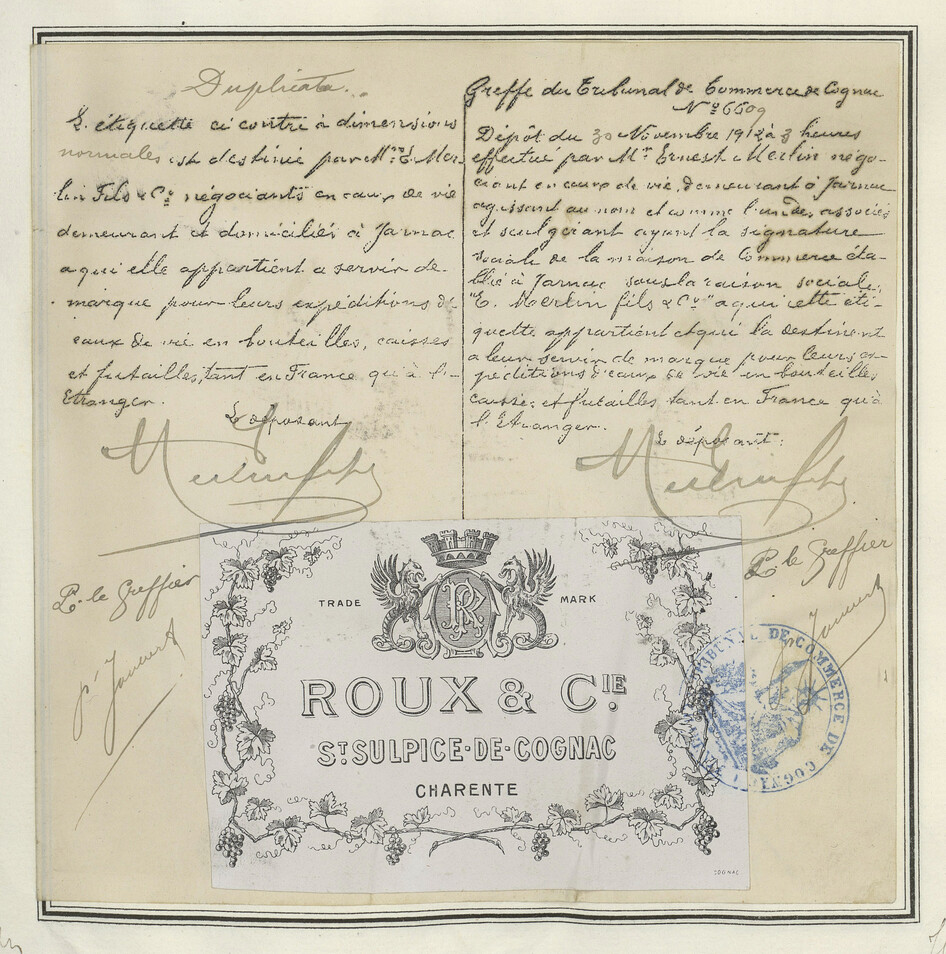 Duplicata.
L'étiquette ci contre à dimensions
normales est destinée par Mr. E. Mer-
lin Fils & Cie négociants en eaux de vie
demeurant et domiciliés à Jarnac
a qui elle appartient a servir de
marque pour leurs expéditions d'
eaux de vie en bouteilles, caisses
et futailles, tant en France qu'à l'-
Etranger.
Le déposant
P. le Greffier
Greffe du Tribunal de Commerce de Cognac
No 6609
Dépôt du 30 Novembre 1912 à 3 heures
effectué par Mr Ernest Merlin négo-
ciant en eaux de vie, demeurant à Jarnac
agissant au nom et comme l'un des associés
et seul gérant ayant la signature
sociale de la maison de Commerce éta-
blie à Jarnac sous la raison sociale,
"E. Merlin fils & Cie" a qui cette éti-
quette appartient et qui la destinent
a leur servir de marque pour leurs ex-
péditions d'eaux de vie en bouteilles
caisses et futailles tant en France qu'à
l'Etranger.
Le déposant:
P. le Greffier
TRADE MARK
RR
ROUX & CIE.
ST SULPICE-DE-COGNAC
CHARENTE
COGNAC
TRIBUNAL DE COMMERCE DE COGNAC